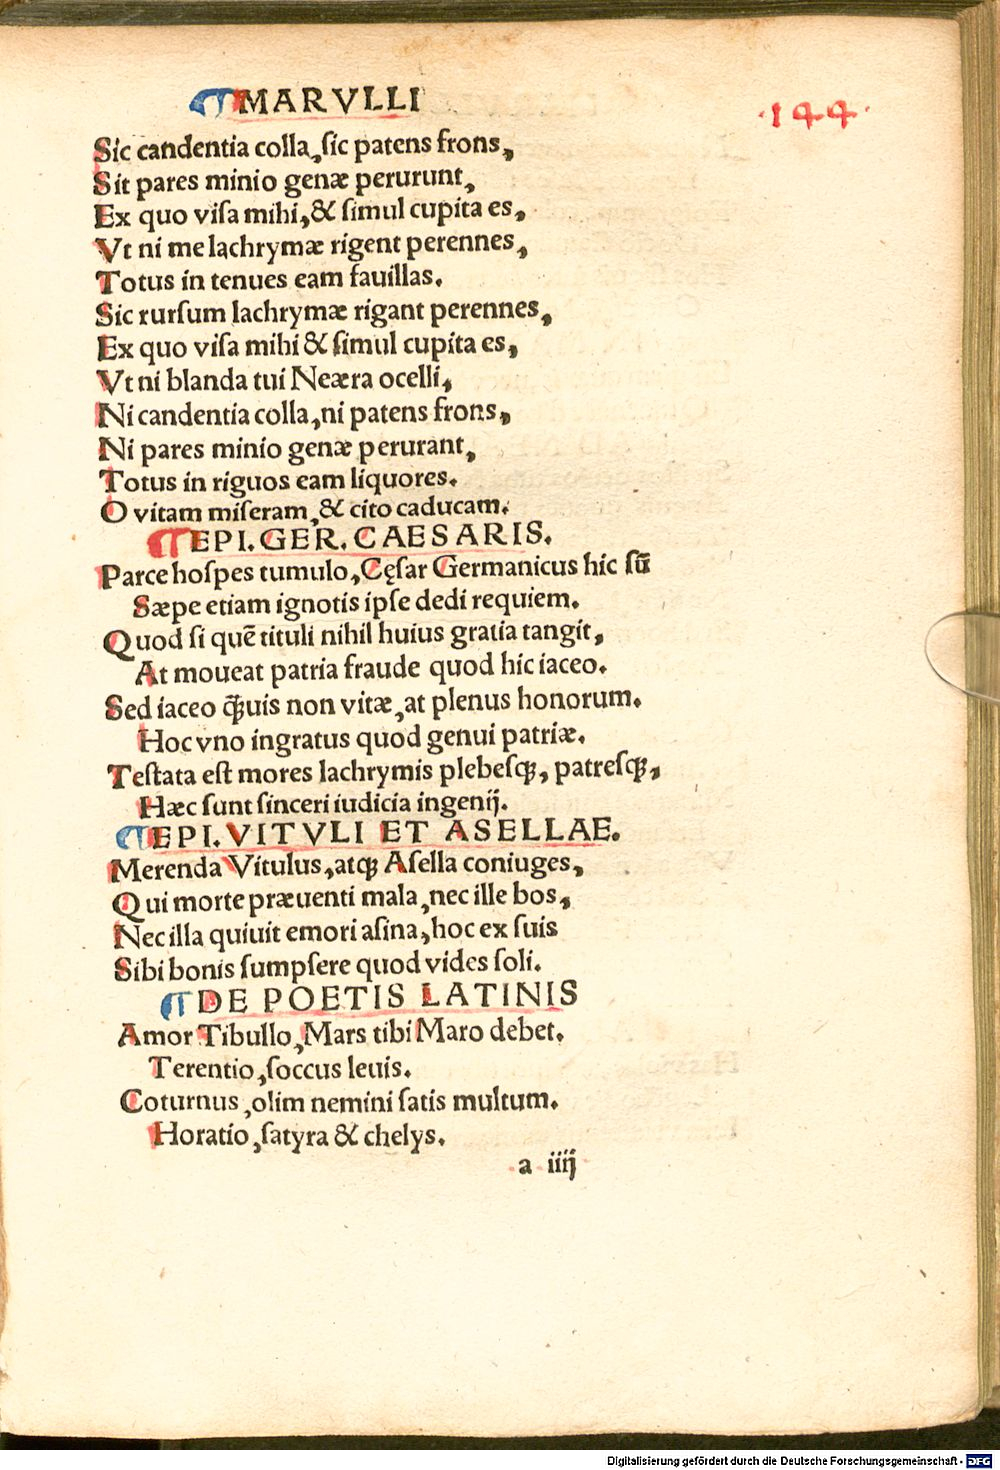 ¶MARVLLI
·144·
Sic candentia colla, ſic patens frons,
Sit pares minio genæ perurunt,
Ex quo viſa mihi, & ſimul cupita es,
Vt ni me lachrymæ rigent perennes,
Totus in tenues eam fauillas.
Sic rurſum lachrymæ rigant perennes,
Ex quo viſa mihi & ſimul cupita es,
Vt ni blanda tui Neæra ocelli,
Ni candentia colla, ni patens frons,
Ni pares minio genæ perurant,
Totus in riguos eam liquores.
O vitam miſeram, & cito caducam.
¶EPI. GER. CAESARIS.
Parce hoſpes tumulo, Cęſar Germanicus hic ſū
Sæpe etiam ignotis ipſe dedi requiem.
Quod ſi quē tituli nihil huius gratia tangit,
At moueat patria fraude quod hic iaceo.
Sed iaceo ꝙ̃uis non vitæ, at plenus honorum.
Hoc vno ingratus quod genui patriæ.
Teſtata eſt mores lachrymis plebeſꝙ, patreſꝙ,
Hæc ſunt ſinceri iudicia ingenij.
¶EPI. VITVLI ET ASELLAE.
Merenda Vitulus, atꝙ Aſella coniuges,
Qui morte præuenti mala, nec ille bos,
Nec illa quiuit emori aſina, hoc ex ſuis
Sibi bonis ſumpſere quod vides ſoli.
¶DE POETIS LATINIS
Amor Tibullo, Mars tibi Maro debet.
Terentio, ſoccus leuis.
Coturnus, olim nemini ſatis multum.
Horatio, ſatyra & chelys.
a iiij
Digitalisierung gefördert durch die Deutsche Forschungsgemeinschaft - DFG